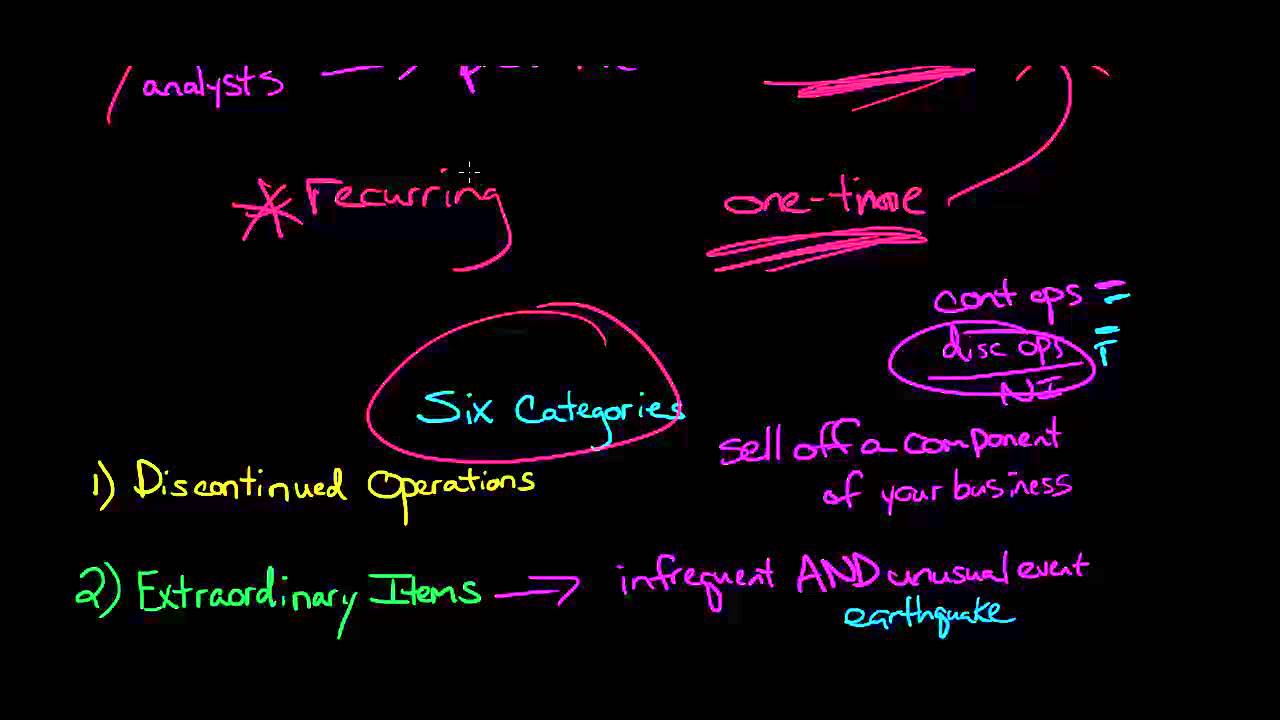 analysts
recurring
one-time
cont ops
disc ops
NI
Six Categories
sell off a component
of your business
1) Discontinued Operations
2) Extraordinary Items → infrequent AND unusual event
earthquake